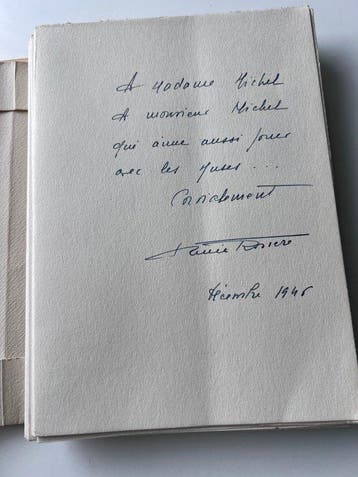 A Madame Michel
A monsieur Michel
qui aime aussi jouer
avec les Muses ...
Cordialement
décembre 1946